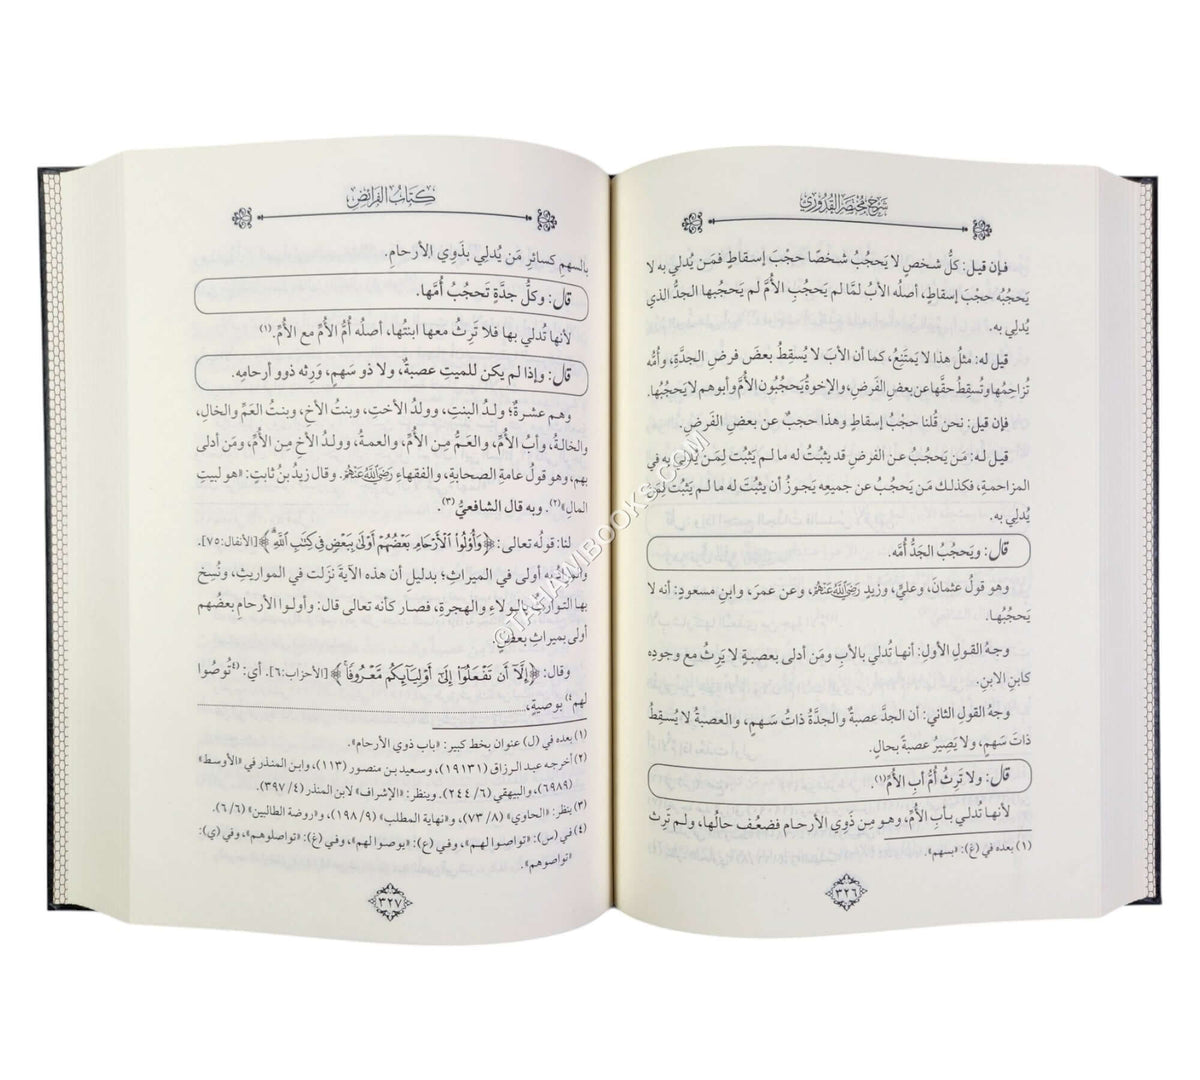 شرح مختصر القدوري
فإن قيل: كلُّ شخصٍ لا يَحجُبُ شخصًا حجْبَ إسقاطٍ فمَن يُدلي به لا
يَحجُبُه حجْبَ إسقاطٍ، أصلُه الأبُ لمَّا لم يَحجُبِ الأُمَّ لم يَحجُبها الجدُّ الذي
يُدلِي به.
قيل له: مثلُ هذا لا يَمتَنِعُ، كما أن الأبَ لا يُسقِطُ بعضَ فرضِ الجدَّةِ، وأُمُّه
تُزاحِمُها وتُسقِطُ حقَّها عن بعضِ الفَرضِ، والإخوةُ يَحجُبُون الأُمَّ وأبوهم لا يَحجُبُها.
فإن قيل: نحن قُلنا حجْبُ إسقاطٍ وهذا حجبٌ عن بعضِ الفَرضِ.
قيل له: مَن يَحجُبُ عن الفرضِ قد يثبُتُ له ما لم يَثبُت لِمَن يُدلي به في
المزاحمةِ، فكذلك مَن يَحجُبُ عن جميعِه يَجوزُ أن يثبُتَ له ما لم يَثبُت لِمَن
يُدلِي به.
قال: ويَحجُبُ الجَدُّ أُمَّه.
وهو قولُ عثمانَ، وعليٍّ، وزيدٍ رَضِيَ اللَّهُ عَنْهُمْ، وعن عمرَ، وابنِ مسعودٍ: أنه لا
يَحجُبُها.
وجهُ القولِ الأولِ: أنها تُدلي بالأبِ ومَن أدلى بعصبةٍ لا يَرِثُ مع وجودِه
كابنِ الابنِ.
وجهُ القولِ الثاني: أن الجدَّ عصبةٌ والجدَّةُ ذاتُ سَهمٍ، والعصبةُ لا يُسقِطُ
ذاتَ سَهمٍ، ولا يَصِيرُ عصبةً بحالٍ.
قال: ولا تَرِثُ أُمُّ أبِ الأُمِّ(١).
لأنها تُدلي بأبِ الأُمِّ، وهو مِن ذَوِي الأرحامِ فضَعُف حالُها، ولم تَرِث
(١) بعده في (غ): «بسهم».
٣٢٦
كتاب الفرائض
بالسهمِ كسائرِ مَن يُدلِي بذَوِي الأرحامِ.
قال: وكلُّ جدَّةٍ تَحجُبُ أُمَّها.
لأنها تُدلي بها فلا تَرِثُ معها ابنتُها، أصلُه أُمُّ الأُمِّ مع الأُمِّ.(١)
قال: وإذا لم يكن للميتِ عصبةٌ، ولا ذو سَهمٍ، وَرِثه ذوو أرحامِه.
وهم عشرةٌ؛ ولدُ البنتِ، وولدُ الأختِ، وبنتُ الأخِ، وبنتُ العَمِّ والخالِ،
والخالةُ، وأبُ الأُمِّ، والعَمُّ مِن الأُمِّ، والعمةُ، وولدُ الأخِ مِن الأُمِّ، ومَن أدلى
بهم، وهو قولُ عامةِ الصحابةِ، والفقهاءِ رَضِيَ اللَّهُ عَنْهُمْ. وقال زيدُ بنُ ثابتٍ: «هو لبيتِ
المالِ»(٢). وبه قال الشافعيُّ(٣).
لنا: قولُه تعالى: ﴿وَأُوْلُواْ الْأَرْحَامِ بَعْضُهُمْ أَوْلَىٰ بِبَعْضٍ فِي كِتَابِ اللَّهِ﴾ [الأنفال: ٧٥].
والمرادُ به أولى في الميراثِ؛ بدليلِ أن هذه الآيةَ نزَلت في المواريثِ، ونُسِخ
بها التوارثُ بالولاءِ والهجرةِ، فصار كأنه تعالى قال: وأولوا الأرحامِ بعضُهم
أولى بميراثِ بعضٍ.
وقال: ﴿إِلَّا أَن تَفْعَلُواْ إِلَىٰ أَوْلِيَائِكُم مَّعْرُوفًا﴾ [الأحزاب: ٦]. أي: (٤تُوصُوا
لهم٤) بوصيةٍ،
(١) بعده في (ل) عنوان بخط كبير: «باب ذوي الأرحام».
(٢) أخرجه عبد الرزاق (١٩١٣١)، وسعيد بن منصور (١١٣)، وابن المنذر في «الأوسط»
(٦٩٨٩)، والبيهقي (٦/ ٢٤٤). وينظر: «الإشراف» لابن المنذر (٤/ ٣٩٧).
(٣) ينظر: «الحاوي» (٨/ ٧٣)، و«نهاية المطلب» (٩/ ١٩٨)، و«روضة الطالبين» (٦/ ٦).
(٤) في (س): «تواصوا لهم»، وفي (ع): «يوصوا لهم»، وفي (غ): «تواصلوهم»، وفي (ي):
«تواصوهم».
٣٢٧
©TAHAMIBOOKS.COM